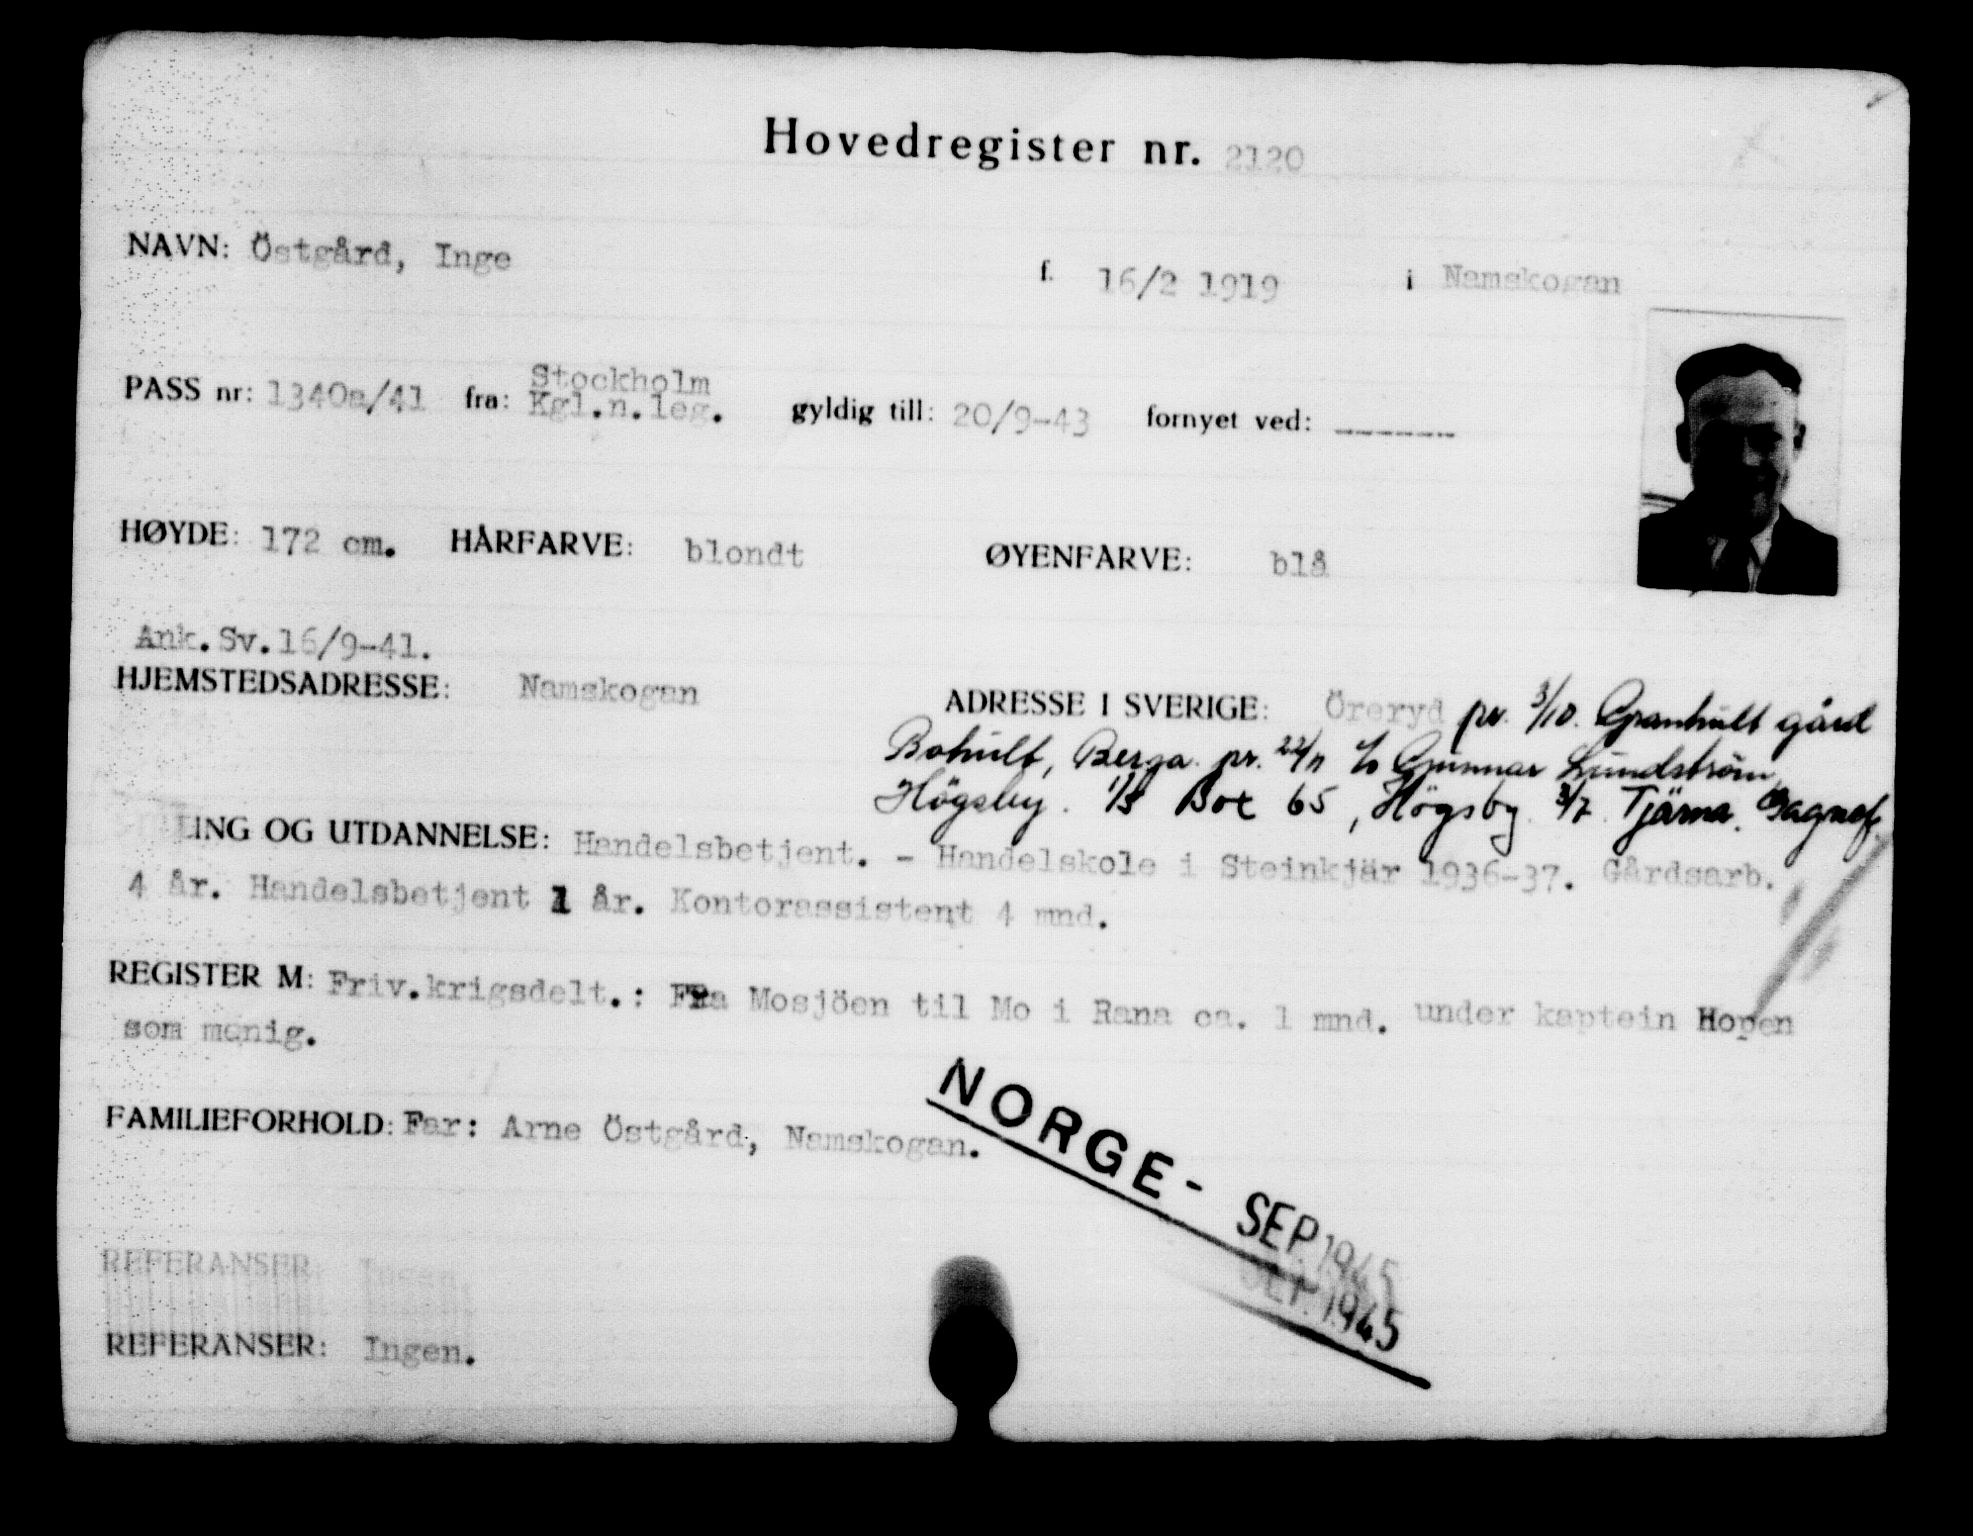 Hovedregister nr. 2120
NAVN: Östgård, Inge f. 16/2 1919 i Namskogan
Stockholm
PASS nr: 1340a/41 fra: Kgl.n.leg. gyldig till: 20/9-43 fornyet ved: -------
HØYDE: 172 cm. HÅRFARVE: blondt ØYENFARVE: blå
Ank.Sv.16/9-41.
HJEMSTEDSADRESSE: Namskogan ADRESSE I SVERIGE: Öreryd pr. 3/10. Granhult gård
Bohult, Berga. pr. 22/11 c/o Gunnar Lundström,
Högsby. 1/5 Box 65, Högsby. 3/7. Tjärna. Gagnef
LING OG UTDANNELSE: Handelsbetjent. - Handelskole i Steinkjär 1936-37. Gårdsarb.
4 år. Handelsbetjent 1 år. Kontorassistent 4 mnd.
REGISTER M: Friv.krigsdelt.: Fra Mosjöen til Mo i Rana ca. 1 mnd. under kaptein Hopen
som menig.
FAMILIEFORHOLD: Far: Arne Östgård, Namskogan.
NORGE - SEP 1945
SEP 1945
REFERANSER: Ingen.
REFERANSER: Ingen.